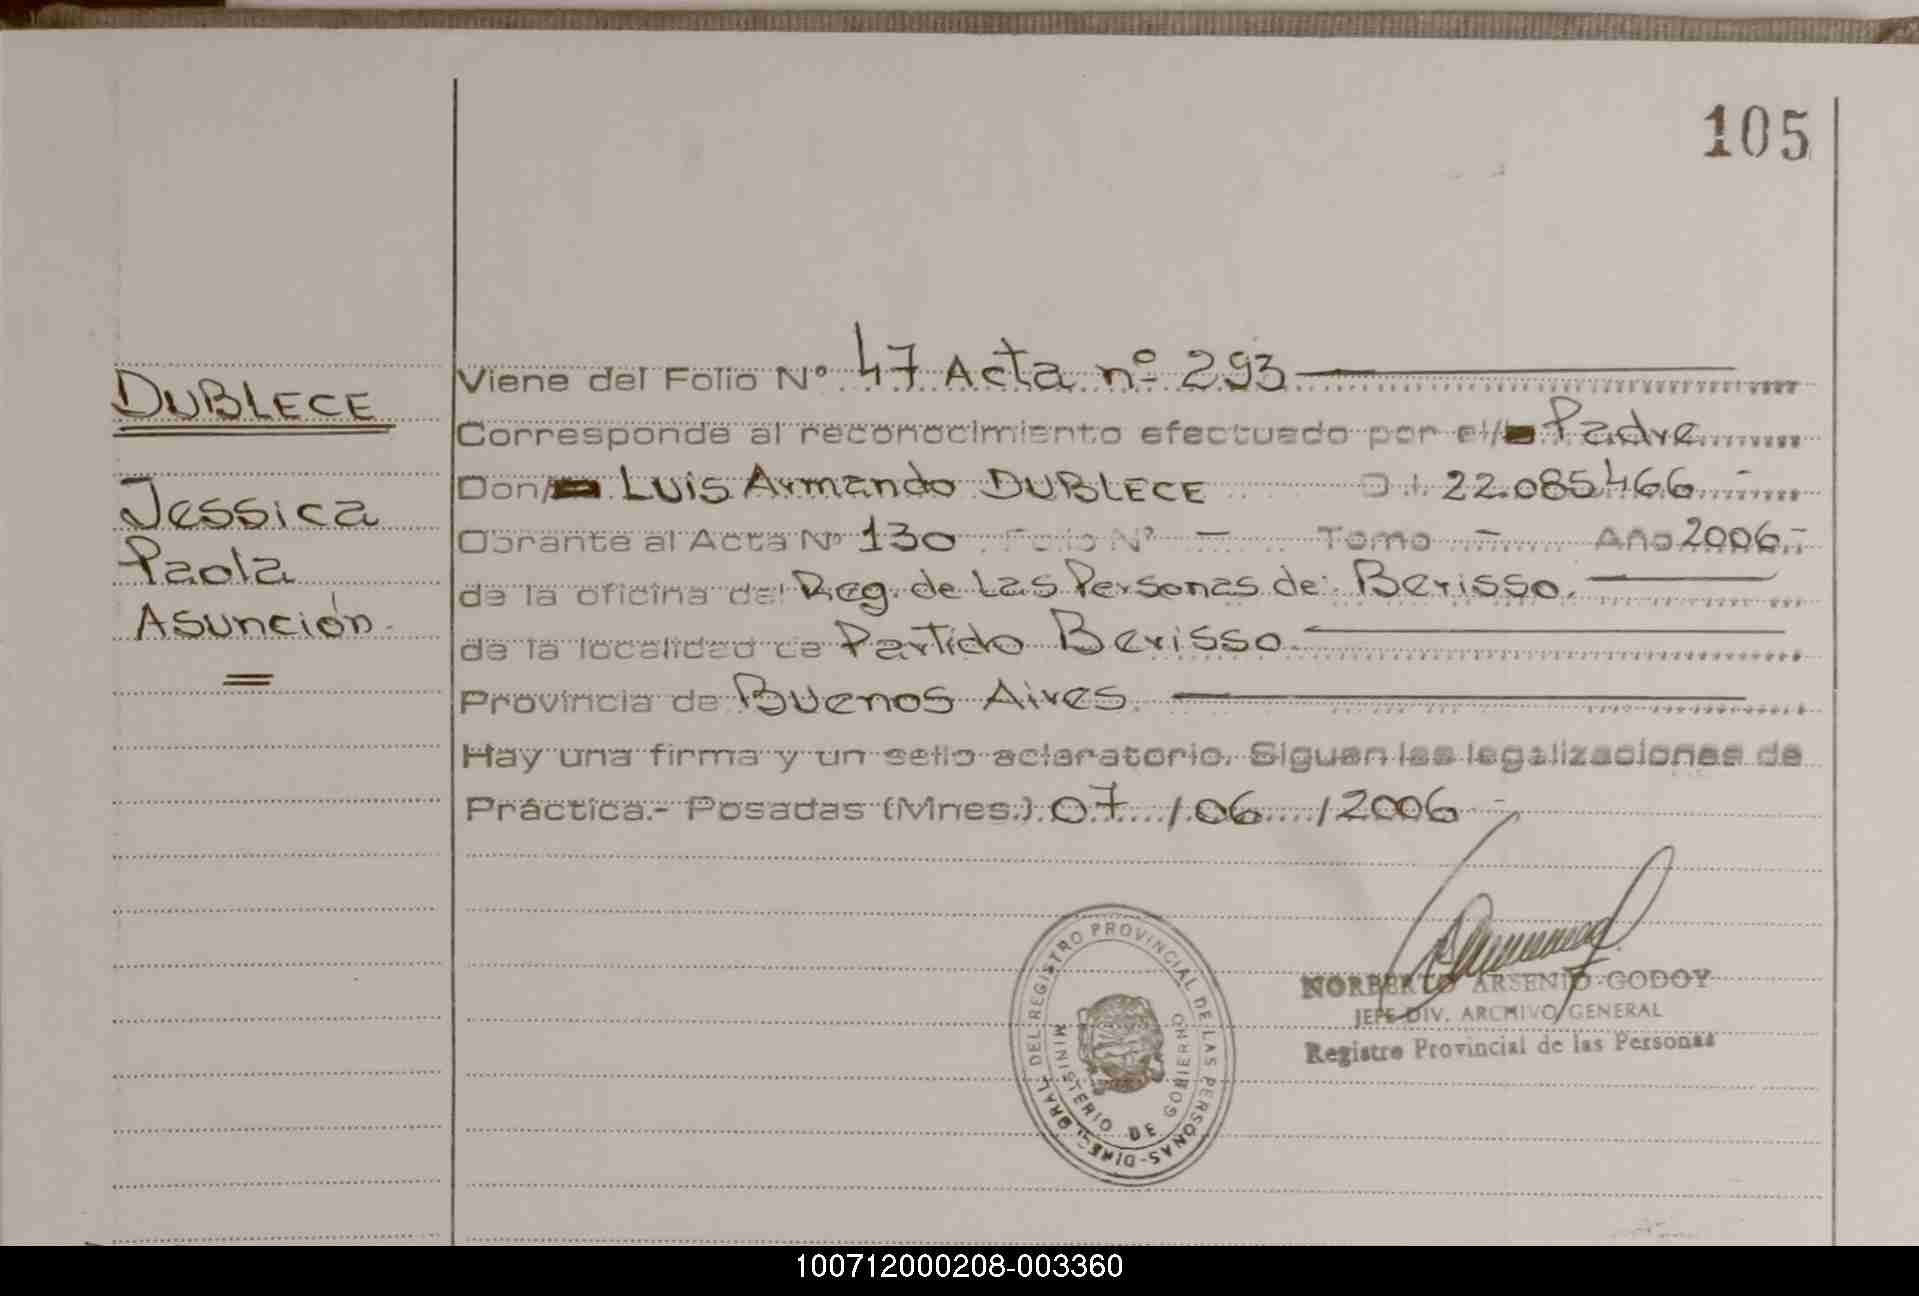 105
DUBLECE
Jessica
Paola
Asunción.
Viene del Folio Nº 47 Acta nº 293
Corresponde al reconocimiento efectuado por el/ Padre
Don/ Luis Armando DUBLECE D.I. 22.085466 -
Obrante al Acta Nº 130 Folio Nº - Tomo - Año 2006.-
de la oficina del Reg. de Las Personas de: Berisso.
de la localidad de Partido Berisso.
Provincia de Buenos Aires.
Hay una firma y un sello aclaratorio. Siguen las legalizaciones de
Práctica.- Posadas (Mnes.) 07 / 06 / 2006 -
NORBERTO ARSENIO GODOY
JEFE DIV. ARCHIVO GENERAL
Registro Provincial de las Personas
DEL REGISTRO PROVINCIAL DE LAS PERSONAS-DIREC. GRAL.
MINISTERIO DE GOBIERNO
100712000208-003360